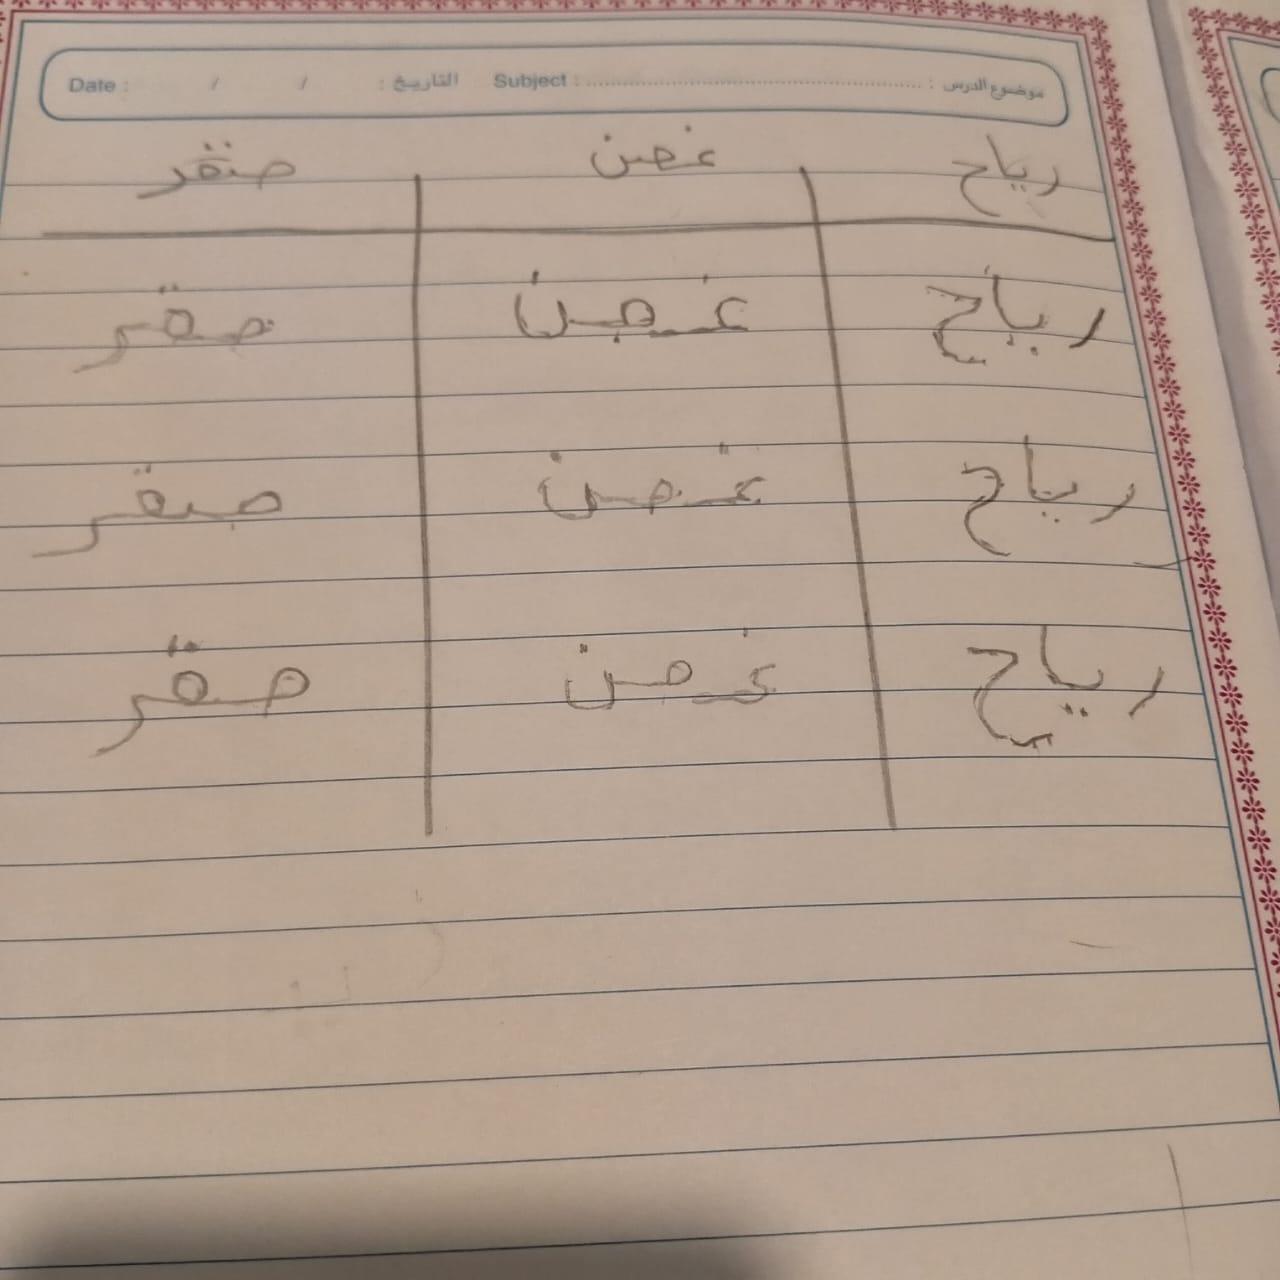 موضوع الدرس : Subject : التاريخ : / / Date :
رياح غصن صقر
رياح غصن صقر
رياح غصن صقر
رياح غصن صقر